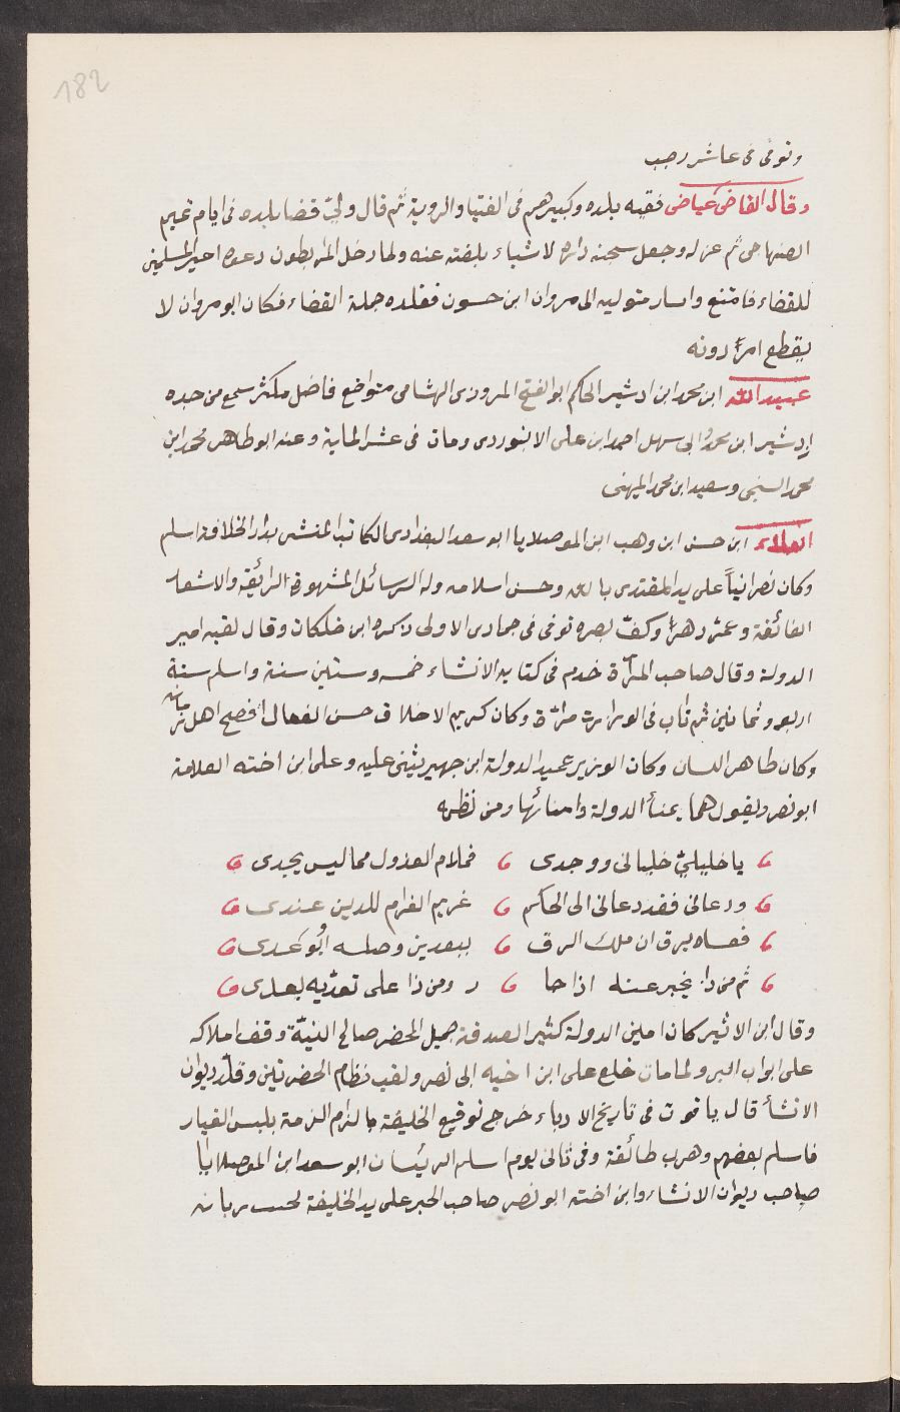 182
وتوفى فى عاشر رجب
وقال القاضى عياض فقيه بلده وكبيرهم فى الفتيا والروية ثم قال ولى قضا بلده فى ايام تميم
الصنهاجى ثم عزله وجعل سجنه داره لاشياء بلغته عنه ولما دخل المرابطون دعوه امير المسلمين
للقضاء فامتنع واسار متوليه الى مروان ابن حسون فقلده جلة القضاء فكان ابو مروان لا
يقطع امرًا دونه
عبيد الله ابن محمد ابن ادشير الحاكم ابو الفتح المروزى الهشامى متواضع فاضل مكثر سمع من جده
ادشير ابن محمد وابى سهل احمد ابن على الابنوردى ومات فى عشر الماية وعنه ابو طاهر محمد ابن
محمد السنجى وسعيد ابن محمد الميهنى
العلاء ابن حسن ابن وهب ابن الموصلايا ابو سعد البغدادى الكاتب المنشى بدار الخلافة اسلم
وكان نصرانياً على يد المقتدى بالله وحسن اسلامه وله الرسائل المشهورة الرائقة والاشعار
الفائقة وعمر دهراً وكفّ بصره توفى فى جمادى الاولى ذكره ابن خلكان وقال لقبه امير
الدولة وقال صاحب المرآة خدم فى كتابه الانشاء خمسه وستين سنة واسلم سنة
اربع وثمانين ثم ناب فى الوزارت مرّة وكان كريم الاخلاق حسن الفعال افصح اهل زمانه
وكان طاهر اللسان وكان الوزير عميد الدولة ابن جهير يثنى عليه وعلى ابن اخته العلامة
ابو نصر ويقول هما يمنا الدولة وامنائها ومن نظمه
يا خليليّ خليانى ووجدى فملام العذول مما ليس يجدى
ودعانى فقد دعانى الى الحكم غريم الغرام للدين عندى
فعساه يرق ان ملك الرق بيعدين وصله او وعدى
ثم من ذا يخبر عنه اذا جا ر ومن ذا على تعدّيه يعدى
وقال ابن الاثير كان امين الدولة كثير الصدقة جميل المحضر صالح النيّة وقف املاكه
على ابواب البر ولما مات خلع على ابن اخيه الى نصر ولقب نظام الحضرتين وقلّد ديوان
الانشأ قال ياقوت فى تاريخ الادباء خرج توقيع الخليفة بالزام الذمة بلبس الغيار
فاسلم بعضهم وهرب طائفة وفى ثانى يوم اسلم الرئيسان ابو سعد ابن الموصلايا
صاحب ديوان الانشاء وابن اخته ابو نصر صاحب الخبر على يد الخليفة بحيث يريانه